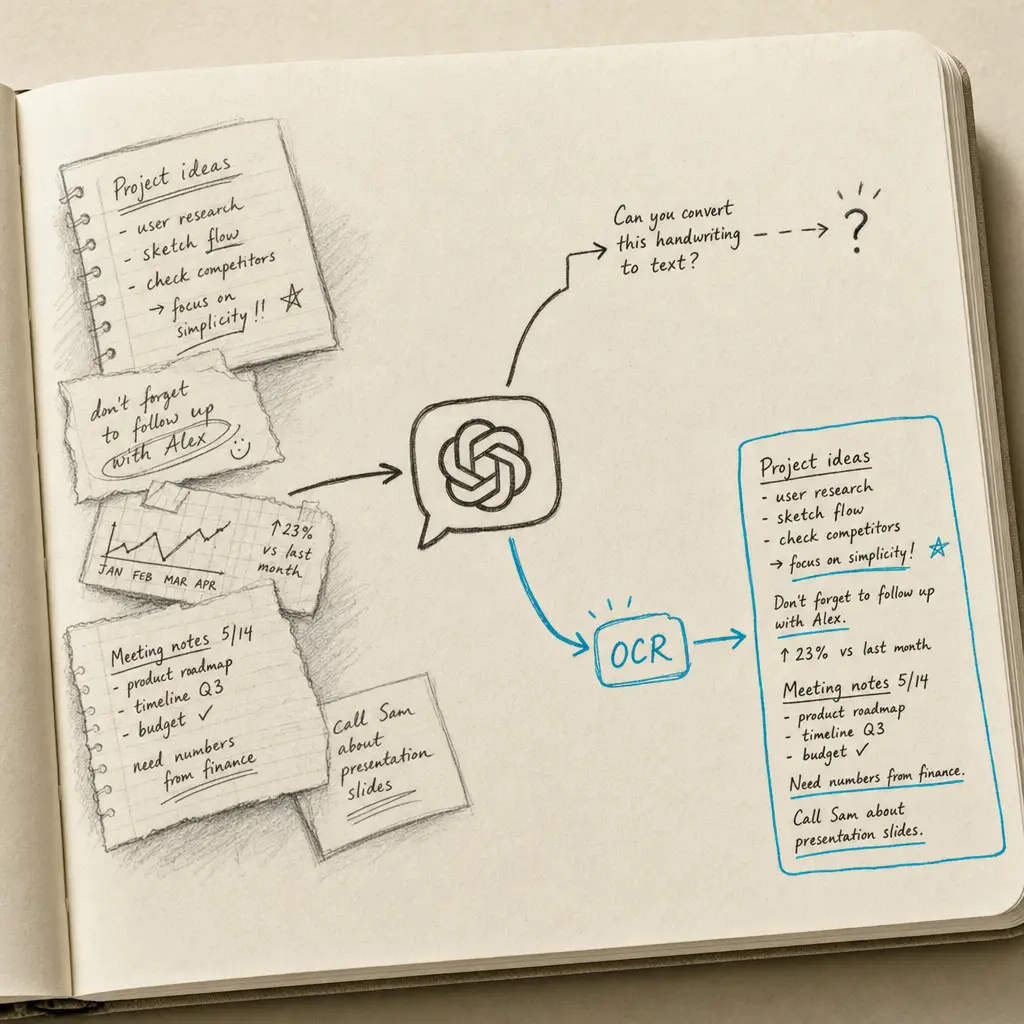 Project ideas
- user research
- sketch flow
- check competitors
→ focus on
simplicity!!
don't forget
to follow up
with Alex
JAN FEB MAR APR
↑23%
vs last
month
Meeting notes 5/14
- product roadmap
- timeline Q3
- budget ✓
need numbers
from finance
Call Sam
about
presentation
slides
Can you convert
this handwriting
to text?
?
OCR
Project ideas
- user research
- sketch flow
- check competitors
→ focus on simplicity!
Don't forget to follow up
with Alex.
↑ 23% vs last month
Meeting notes 5/14
- product roadmap
- timeline Q3
- budget ✓
Need numbers from finance.
Call Sam about
presentation slides.